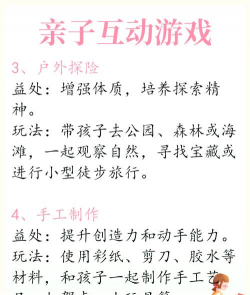 亲子互动游戏
3、户外探险
益处：增强体质，培养探索精
神。
玩法：带孩子去公园、森林或海
滩，一起观察自然，寻找宝藏或
进行小型徒步旅行。
4、手工制作
益处：提升创造力和动手能力。
玩法：使用彩纸、剪刀、胶水等
材料，和孩子一起制作手工艺